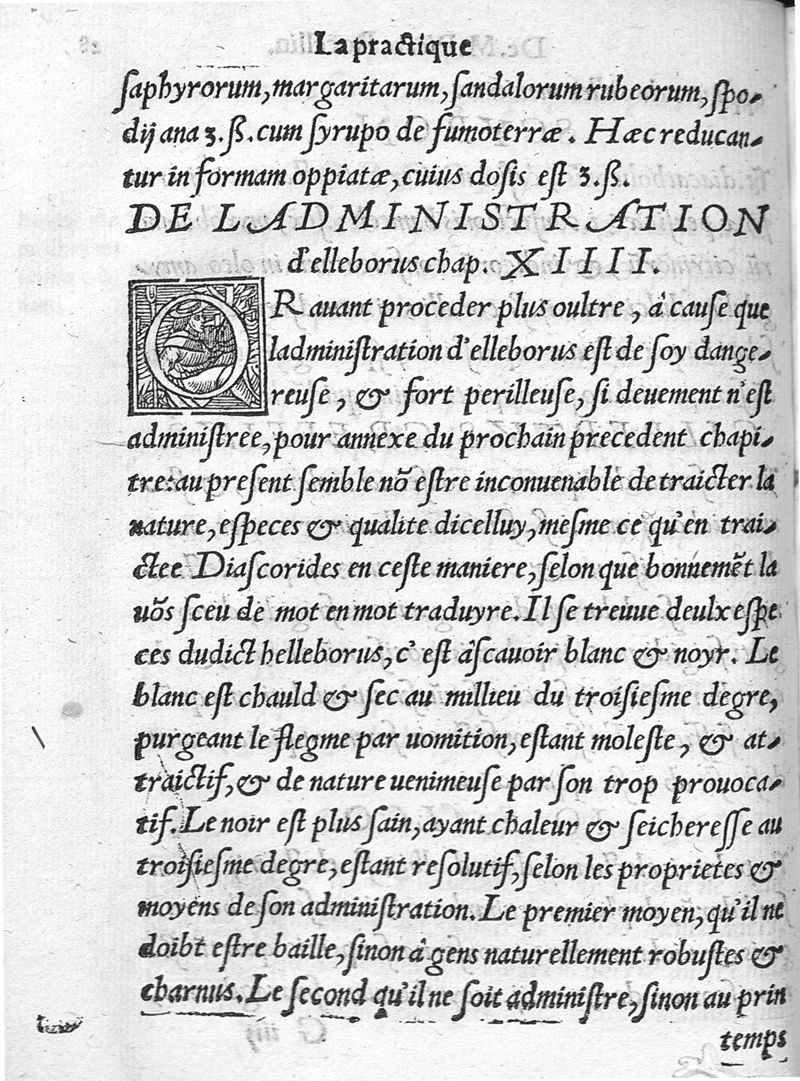 La practique
saphyrorum, margaritarum, sandalorum rubeorum, spo-
dij ana ʒ.ß. cum syrupo de fumoterræ. Hæc reducan-
tur in formam oppiatæ, cuius dosis est ʒ.ß.
DE LADMINISTRATION
d'elleborus chap. XIIII.
OR auant proceder plus oultre, â cause que
ladministration d'elleborus est de soy dange-
reuse, & fort perilleuse, si deuement n'est
administree, pour annexe du prochain precedent chapi-
tre: au present semble nõ estre inconuenable de traicter la
nature, especes & qualite dicelluy, mesme ce qu'en trai-
ctee Diascorides en ceste maniere, selon que bonnemẽt la
uõs sceu de mot en mot traduyre. Il se treuue deulx espe
ces dudict helleborus, c'est âscauoir blanc & noyr. Le
blanc est chauld & sec au millieu du troisiesme degre,
purgeant le flegme par uomition, estant moleste, & at-
traictif, & de nature uenimeuse par son trop prouoca-
tif. Le noir est plus sain, ayant chaleur & seicheresse au
troisiesme degre, estant resolutif, selon les proprietes &
moyens de son administration. Le premier moyen, qu'il ne
doibt estre baille, sinon â gens naturellement robustes &
charnus. Le second qu'il ne soit administre, sinon au prin
temps